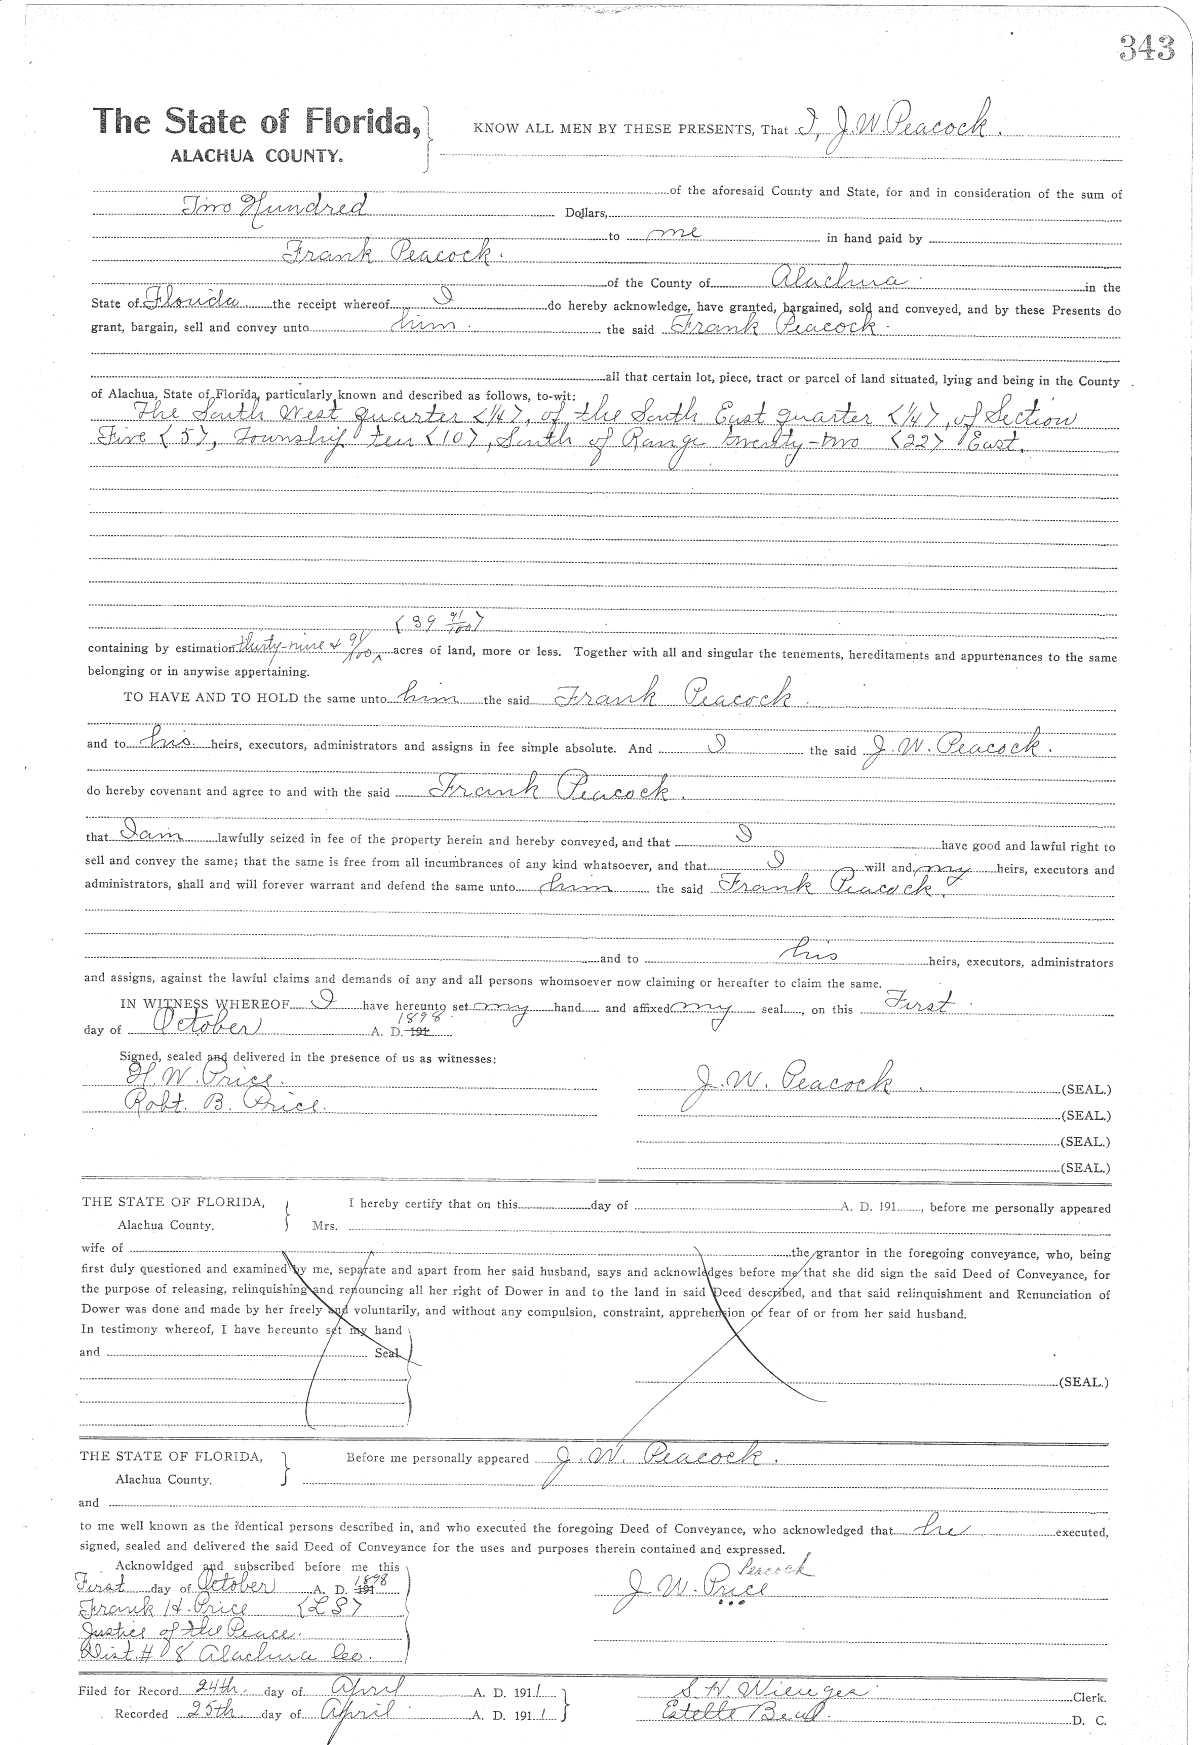 343
The State of Florida, KNOW ALL MEN BY THESE PRESENTS, That I, J.W. Peacock.
ALACHUA COUNTY.
of the aforesaid County and State, for and in consideration of the sum of
Two Hundred Dollars,
to me in hand paid by
Frank Peacock.
of the County of Alachua in the
State of Florida the receipt whereof I do hereby acknowledge, have granted, bargained, sold and conveyed, and by these Presents do
grant, bargain, sell and convey unto him. the said Frank Peacock.
all that certain lot, piece, tract or parcel of land situated, lying and being in the County
of Alachua, State of Florida, particularly known and described as follows, to-wit:
The South West quarter <1/4>, of the South East quarter <1/4>, of Section
Five <5>, Township ten <10>, South of Range twenty-two <22> East.
<39 91/100>
containing by estimation thirty-nine & 91/100 ^ acres of land, more or less. Together with all and singular the tenements, hereditaments and appurtenances to the same
belonging or in anywise appertaining.
TO HAVE AND TO HOLD the same unto him the said Frank Peacock.
and to his heirs, executors, administrators and assigns in fee simple absolute. And I the said J. W. Peacock.
do hereby covenant and agree to and with the said Frank Peacock.
that I am lawfully seized in fee of the property herein and hereby conveyed, and that I have good and lawful right to
sell and convey the same; that the same is free from all incumbrances of any kind whatsoever, and that I will and my heirs, executors and
administrators, shall and will forever warrant and defend the same unto him the said Frank Peacock.
and to his heirs, executors, administrators
and assigns, against the lawful claims and demands of any and all persons whomsoever now claiming or hereafter to claim the same.
IN WITNESS WHEREOF I have hereunto set my hand and affixed my seal, on this First
day of October A. D. 191 1898.
Signed, sealed and delivered in the presence of us as witnesses:
H. W. Price.
Robt. B. Price.
J. W. Peacock. (SEAL.)
(SEAL.)
(SEAL.)
(SEAL.)
THE STATE OF FLORIDA, I hereby certify that on this day of A. D. 191, before me personally appeared
Alachua County. Mrs.
wife of the grantor in the foregoing conveyance, who, being
first duly questioned and examined by me, separate and apart from her said husband, says and acknowledges before me that she did sign the said Deed of Conveyance, for
the purpose of releasing, relinquishing and renouncing all her right of Dower in and to the land in said Deed described, and that said relinquishment and Renunciation of
Dower was done and made by her freely and voluntarily, and without any compulsion, constraint, apprehension or fear of or from her said husband.
In testimony whereof, I have hereunto set my hand
and Seal
(SEAL.)
THE STATE OF FLORIDA, Before me personally appeared J. W. Peacock.
Alachua County.
and
to me well known as the identical persons described in, and who executed the foregoing Deed of Conveyance, who acknowledged that he executed,
signed, sealed and delivered the said Deed of Conveyance for the uses and purposes therein contained and expressed.
Acknowldged and subscribed before me this
First day of October A. D. 191 1898
Peacock
J W Price
Frank H. Price <LS>
Justice of the Peace.
Dist. # 8 Alachua Co.
Filed for Record 24th. day of April A. D. 1911 S. H. Wienges Clerk.
Recorded 25th day of April A. D. 1911 Estelle D. C.